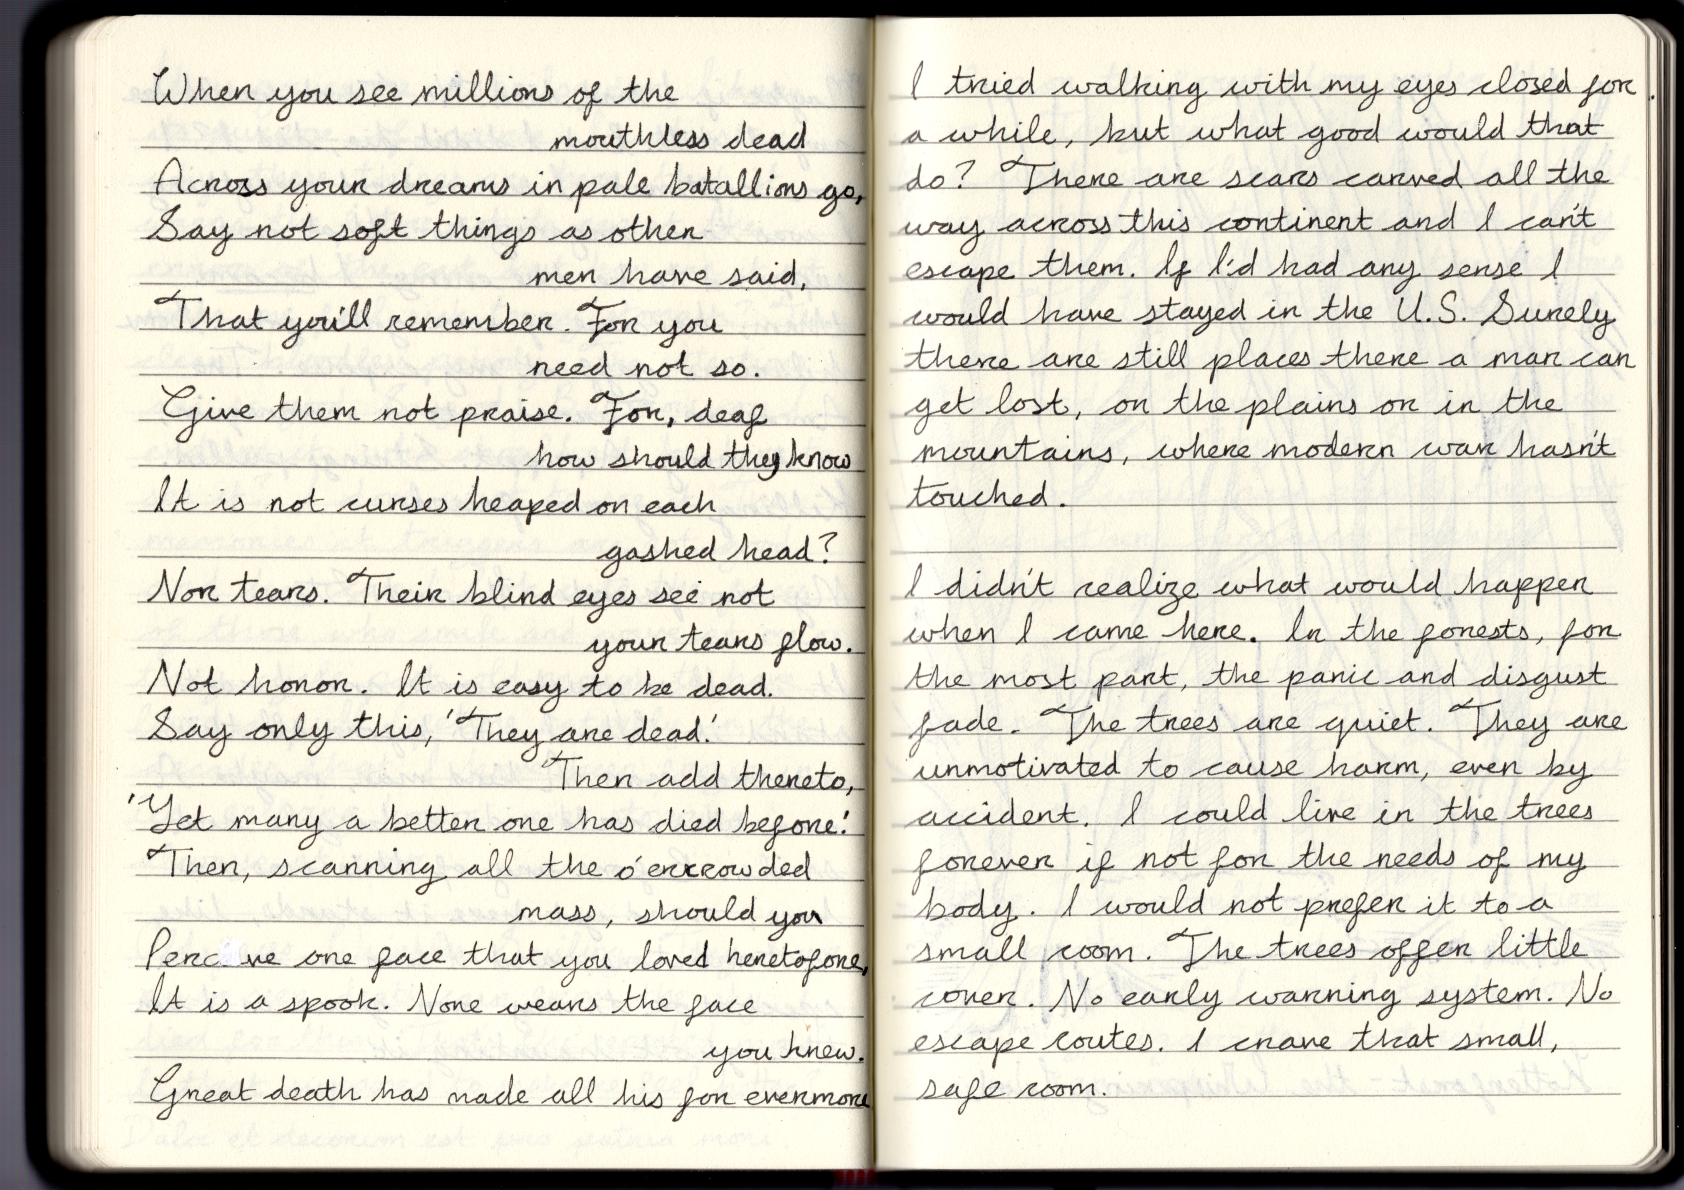 When you see millions of the
mouthless dead
Across your dreams in pale batallions go,
Say not soft things as other
men have said,
That you'll remember. For you
need not so.
Give them not praise. For, deaf
how should they know
It is not curses heaped on each
gashed head?
Nor tears. Their blind eyes see not
your tears flow.
Not honor. It is easy to be dead.
Say only this, 'They are dead.'
Then add thereto,
'Yet many a better one has died before.'
Then, scanning all the o'ercrowded
mass, should you
Perc ve one face that you loved heretofore,
It is a spook. None wears the face
you knew.
Great death has made all his for evermore
I tried walking with my eyes closed for
a while, but what good would that
do? There are scars carved all the
way across this continent and I can't
escape them. If I'd had any sense I
would have stayed in the U.S. Surely
there are still places there a man can
get lost, on the plains or in the
mountains, where modern war hasn't
touched.
I didn't realize what would happen
when I came here. In the forests, for
the most part, the panic and disgust
fade. The trees are quiet. They are
unmotivated to cause harm, even by
accident. I could live in the trees
forever if not for the needs of my
body. I would not prefer it to a
small room. The trees offer little
cover. No early warning system. No
escape routes. I crave that small,
safe room.